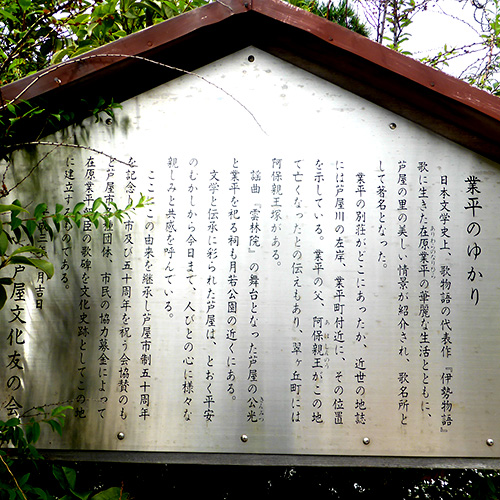 業平のゆかり
日本文学史上、歌物語の代表作『伊勢物語』
歌に生きた在原業平の華麗な生活とともに、
芦屋の里の美しい情景が紹介され、歌名所と
して著名となった。
業平の別荘がどこにあったか、近世の地誌
には芦屋川の左岸、業平町付近に、その位置
を示している。業平の父、阿保親王がこの地
て亡くなったとの伝えもあり、翠ヶ丘町には
阿保親王塚がある。
謡曲『雲林院』の舞台となった芦屋の公光
と業平を祀る祠も月若公園の近くにある。
文学と伝承に彩られた芦屋は、とおく平安
のむかしから今日まで、人びとの心に様々な
親しみと共感を呼んでいる。
ここにこの由来を継承し芦屋市制五十周年
を記念し 市及び五十周年を祝う会協賛のも
と芦屋市 団体、市民の協力募金によって
在原業平朝臣の歌碑を文化史跡としてこの地
に建立するものである。
月吉日
芦屋文化友の会